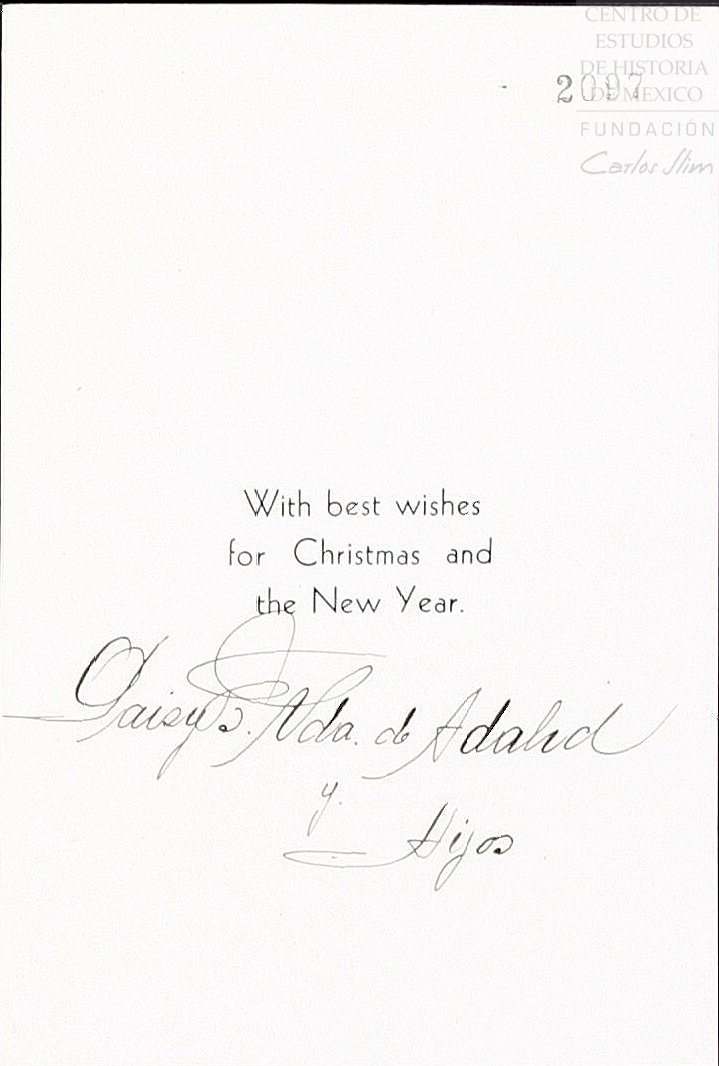 CENTRO DE
ESTUDIOS
DE HISTORIA
DE MEXICO
FUNDACIÓN
Carlos Slim
2097
With best wishes
for Christmas and
the New Year.
Daisy S. Vda. de Adalid
y.
Hijos